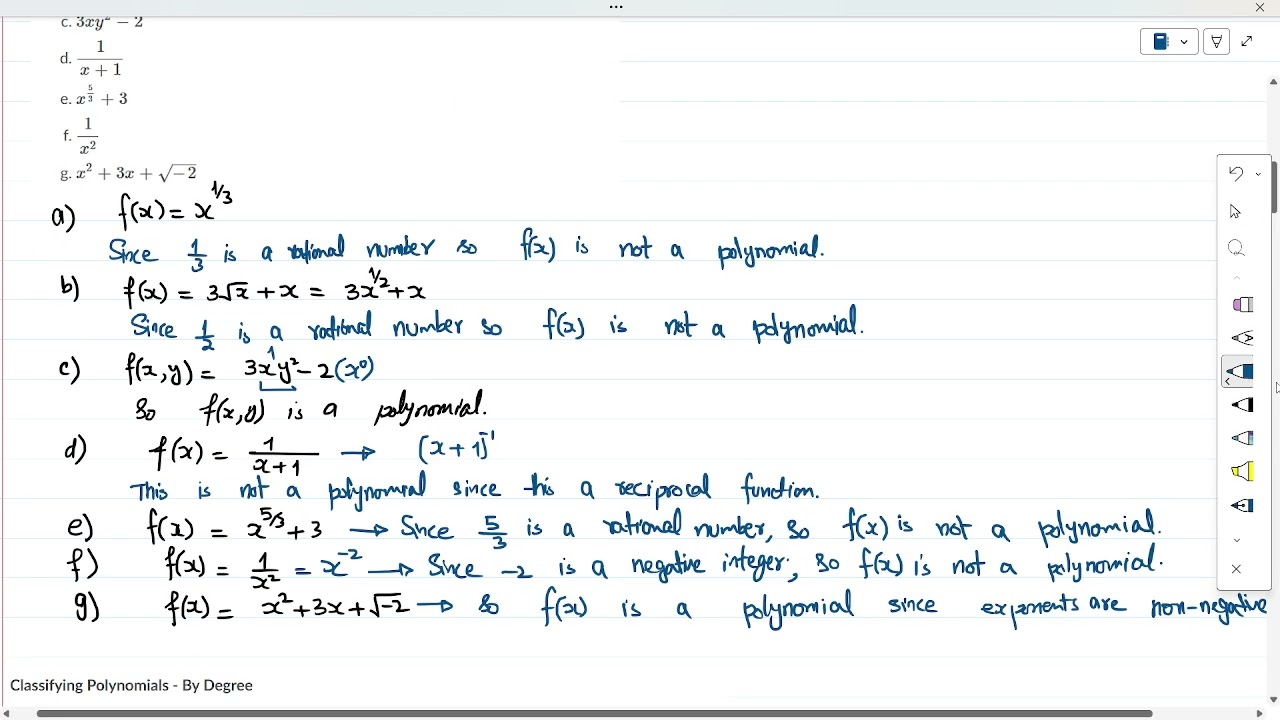 c. 3xy² − 2
d. 1/(x + 1)
e. x^(5/3) + 3
f. 1/x²
g. x² + 3x + √−2
a) f(x) = x^(1/3)
Since 1/3 is a rational number so f(x) is not a polynomial.
b) f(x) = 3√x + x = 3x^(1/2) + x
Since 1/2 is a rational number so f(x) is not a polynomial.
c) f(x,y) = 3x¹y² − 2(x⁰)
So f(x,y) is a polynomial.
d) f(x) = 1/(x+1) → (x+1)⁻¹
This is not a polynomial since this a reciprocal function.
e) f(x) = x^(5/3) + 3 → Since 5/3 is a rational number, so f(x) is not a polynomial.
f) f(x) = 1/x² = x⁻² → Since −2 is a negative integer, so f(x) is not a polynomial.
g) f(x) = x² + 3x + √−2 → so f(x) is a polynomial since exponents are non-negative
Classifying Polynomials - By Degree